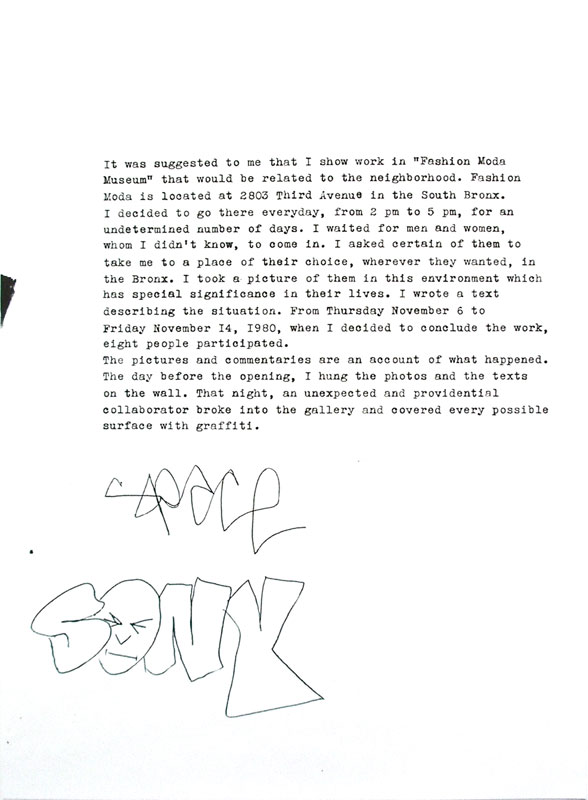 It was suggested to me that I show work in "Fashion Moda
Museum" that would be related to the neighborhood. Fashion
Moda is located at 2803 Third Avenue in the South Bronx.
I decided to go there everyday, from 2 pm to 5 pm, for an
undetermined number of days. I waited for men and women,
whom I didn't know, to come in. I asked certain of them to
take me to a place of their choice, wherever they wanted, in
the Bronx. I took a picture of them in this environment which
has special significance in their lives. I wrote a text
describing the situation. From Thursday November 6 to
Friday November I4, I980, when I decided to conclude the work,
eight people participated.
The pictures and commentaries are an account of what happened.
The day before the opening, I hung the photos and the texts
on the wall. That night, an unexpected and providential
collaborator broke into the gallery and covered every possible
surface with graffiti.
SPACE
SONY